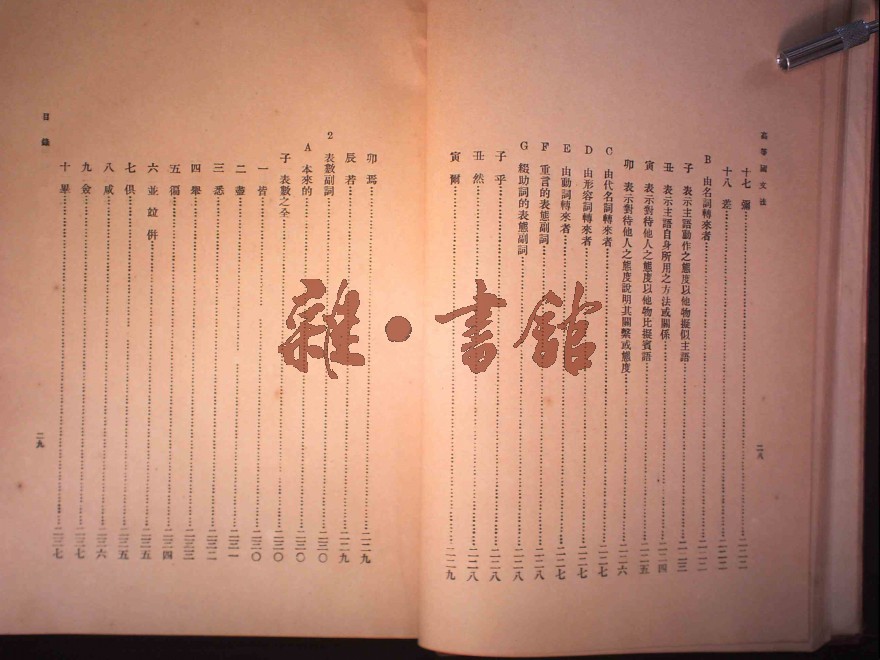 高等國文法
二八
十七 彌……二二二
十八 差……二二二
B 由名詞轉來者……二二二
子 表示主語動作之態度以他物擬似主語……二二三
丑 表示主語自身所用之方法或關係……二二四
寅 表示對待他人之態度以他物比擬賓語……二二五
卯 表示對待他人之態度說明其關繫或態度……二二六
C 由代名詞轉來者……二二七
D 由形容詞轉來者……二二七
E 由動詞轉來者……二二七
F 重言的表態副詞……二二八
G 綴助詞的表態副詞……二二八
子 乎……二二八
丑 然……二二八
寅 爾……二二九
卯 焉……二二九
辰 若……二二九
2 表數副詞……二三〇
A 本來的……二三〇
子 表數之全……二三〇
一 皆……二三〇
二 壹……二三一
三 悉……二三二
四 舉……二三三
五 徧……二三四
六 並 竝 併……二三五
七 俱……二三五
八 咸……二三六
九 僉……二三七
十 畢……二三七
目錄
二九
雜·書館